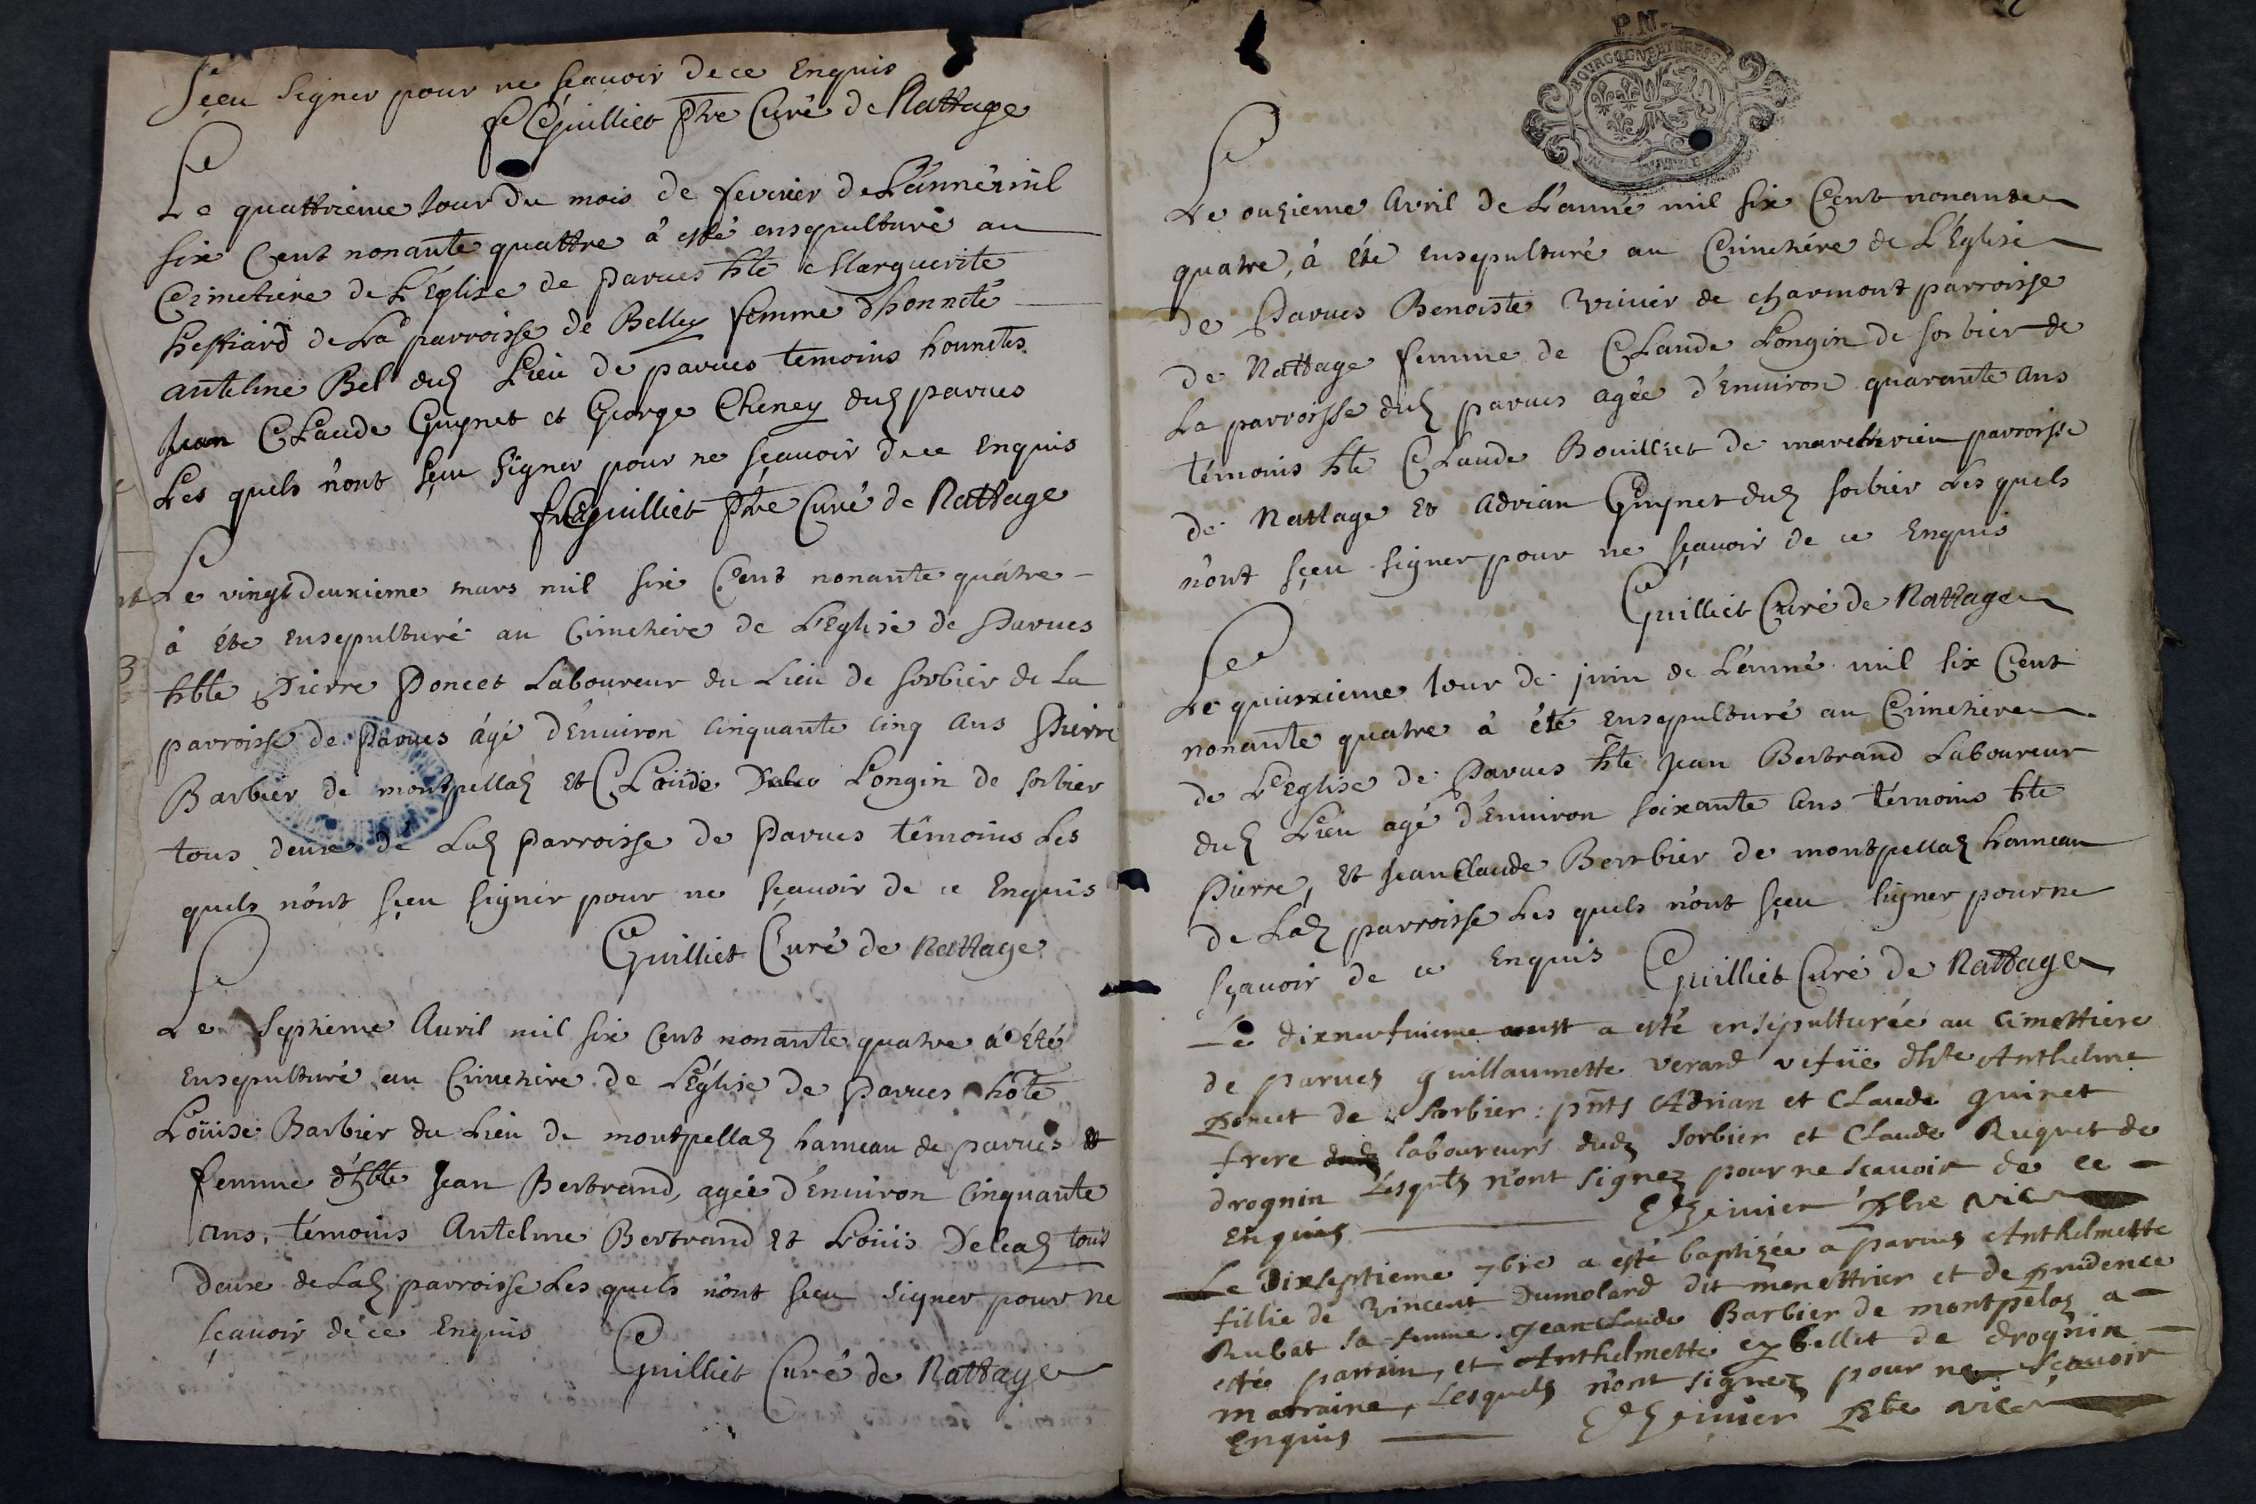 sçeu signer pour ne sçavoir de ce Enquis
Guilliet ptre Curé de Nattage
Le quattrieme Jour Du mois de fevrier de L'année mil
six Cent nonante quattre à esté ensepulturé au
Cimetiere de L'Eglise de parves hte Marguerite
de La parroisse de Belley femme d'honnéte
anteline Bel dud Lieu de parves temoins honnétes
Jean Claude Guynet et George Cheney dud parves
Les quels n'ont sçeu signer pour ne sçavoir de ce Enquis
Guilliet ptre Curé de Nattage
Le vingt deuxieme mars mil six Cent nonante quatre
à été ensepulturé au Cimetiere de L'Eglise de Parves
hble Pierre Poncet Laboureur du Lieu de sorbier de La
parroisse de Parves âgé d'Environ Cinquante Cinq ans Pierre
Barbier de montpellaz et Claude Longin de sorbier
tous deux de Lad Parroisse de Parves témoins Les
quels n'ont sçeu signer pour ne sçavoir de ce Enquis
Guilliet Curé de Nattage
Le septieme Avril mil six Cent nonante quatre à été
Ensepulturé au Cimetiere de L'Eglise de Parves hôte
Loüise Barbier du Lieu de montpellaz hameau de parves et
femme d'hble Jean Bertrand, agée d'Environ Cinquante
ans, témoins Antelme Bertrand et Loüis Deleaz tous
Deux de Lad parroisse Les quels n'ont sçeu signer pour ne
sçavoir de ce Enquis
Guilliet Curé de Nattage
P.M.
BOURGOGNE ET BRESSE
Le onzieme Avril de L'anné mil six Cent nonante
quatre, à été ensepulturé au Cimetiére de L'Eglise
de Parves Benoiste Vivier de charmont parroisse
de Nattage femme de Claude Longin de sorbier de
La parroisse dud parves agée d'Environ quarante ans
témoins hte Claude Bouilliet de parroisse
de Nattage et Adrian Guynet dud sorbier Les quels
n'ont sçeu signer pour ne sçavoir de ce Enquis
Guilliet Curé de Nattage
Le quinzieme Jour de juin de L'anné mil six Cent
nonante quatre à été Ensepulturé au Cimetiere
de L'Eglise de Parves hte Jean Bertrand Laboureur
dud Lieu agé d'Environ soixante ans témoins hte
Pierre, et Jean Claude Berrbier de montpellaz hameau
de Lad parroisse Les quels n'ont sçeu signer pour ne
sçavoir de ce Enquis Guilliet Curé de Nattage
Le dixneufuieme aust a esté ensépulturée au cimettiere
de parves guillaumette verard vefüe dhte Anthelme
poncet de sorbier : pnts Adrian et Claude guinet
frere laboureurs dudz sorbier et Claude Ruquet de
drognin Lesqls n'ont signez pour ne scavoir de ce
Enquis ptre vic
Le Dixseptieme 7bre a esté baptizée a parves Anthelmette
fillie de Vincent Dumolard dit menettrier et de prudence
Rubat sa femme. Jean Claude Barbier de montpelaz a
esté parrain, et Anthelmette bellet de drognin
marraine, Lesquels n'ont signez pour ne sçavoir
Enquis ptre vic